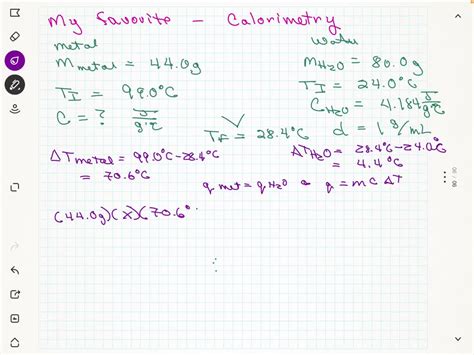 My Savovite - Calorimetry
metal
Mmetal = 44.0g
TI = 99.0°C
C = ? J/g°C
Water
MH2O = 80.0g
TI = 24.0°C
CH2O = 4.184 J/g°C
d = 1 g/mL
TF = 28.4°C
ΔTmetal = 99.0°C-28.4°C
= 70.6°C
ΔTH2O = 28.4°C-24.0°C
= 4.4°C
q met = q H2O
q = mCΔT
(44.0g)(x)(70.6°